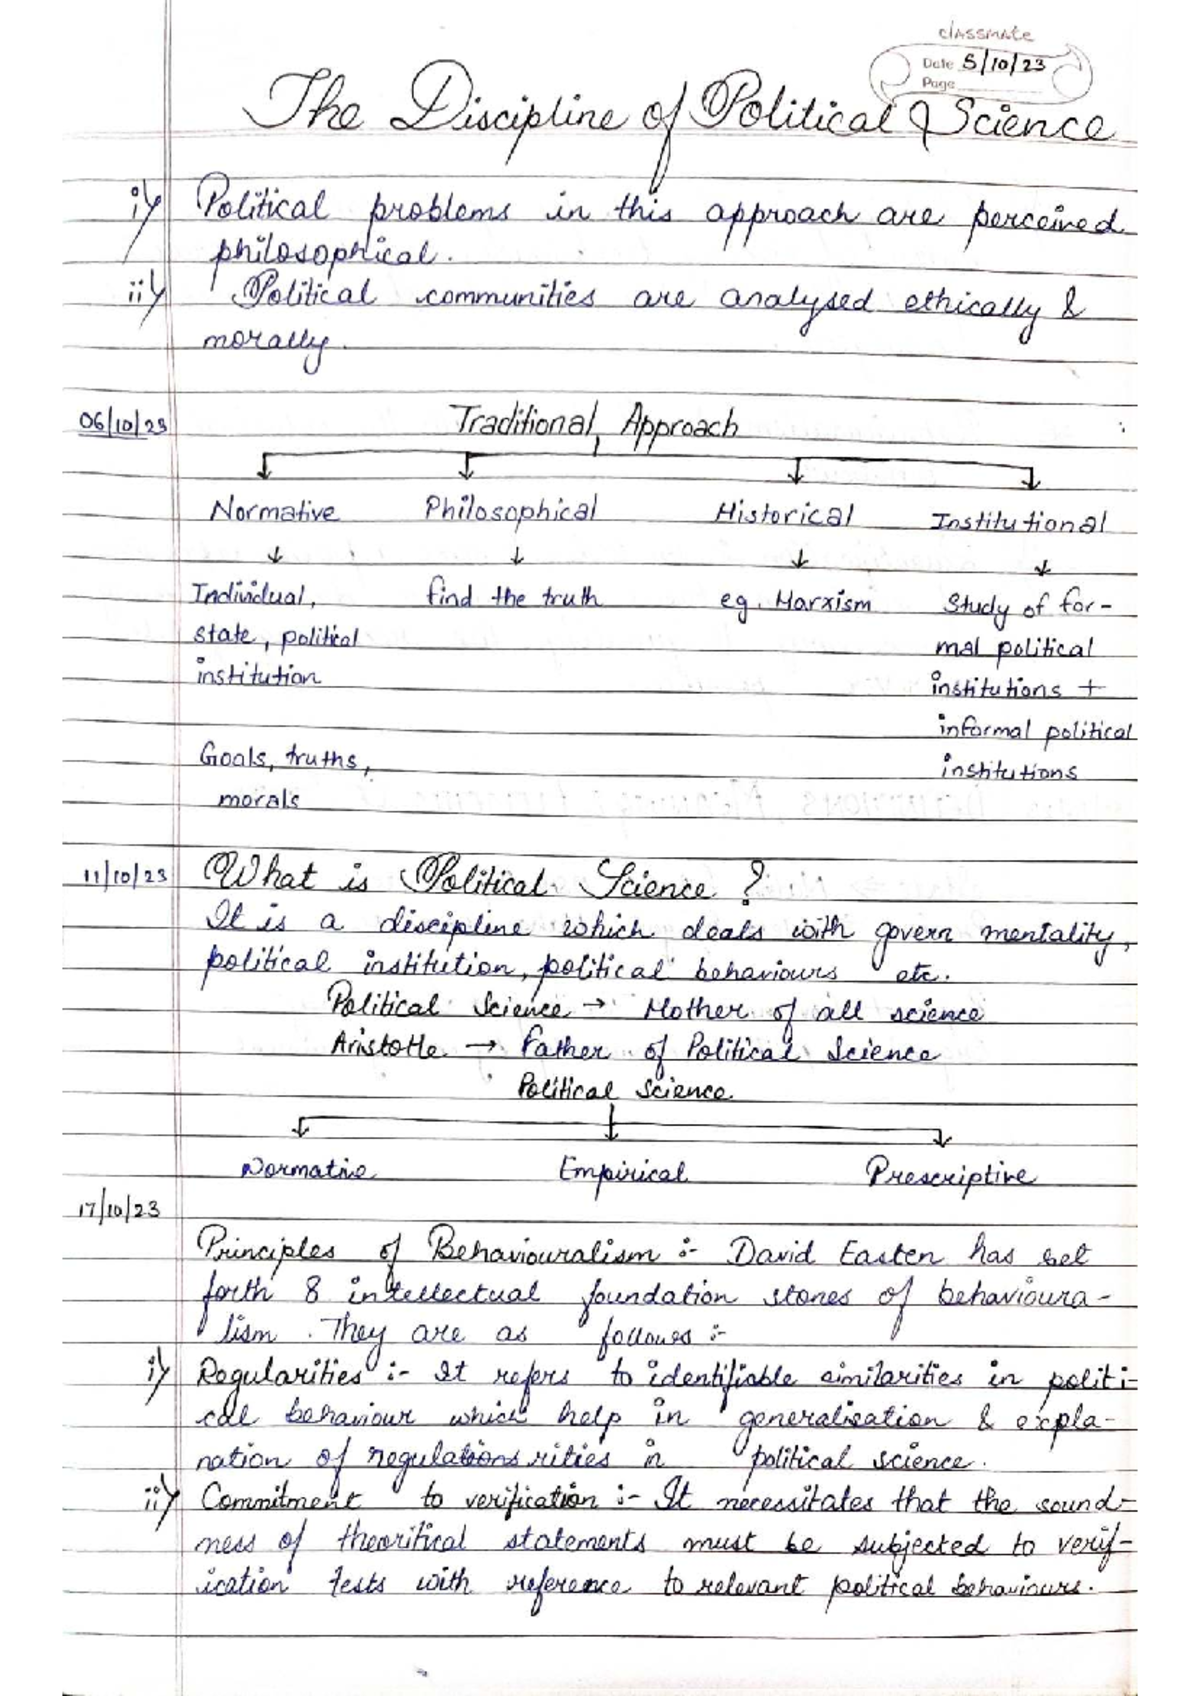 classmate
Date 5/10/23
Page
The Discipline of Political Science
i) Political problems in this approach are perceived
philosophical.
ii) Political communities are analysed ethically &
morally.
06/10/23 Traditional Approach
Normative Philosophical Historical Institutional
↓ ↓ ↓ ↓
Individual, find the truth eg. Marxism Study of for-
state, political mal political
institution institutions +
informal political
Goals, truths, institutions
morals
11/10/23 What is Political Science ?
It is a discipline which deals with govern mentality,
political institution, political behaviours etc.
Political Science → Mother of all science
Aristotle → Father of Political Science
Political science
Normative Empirical Prescriptive
17/10/23
Principles of Behaviouralism :- David Easten has set
forth 8 intellectual foundation stones of behavioura-
lism. They are as follows :-
i) Regularities :- It refers to identifiable similarities in politi-
cal behaviour which help in generalisation & expla-
nation of regularities in political science.
ii) Commitment to verification :- It necessitates that the sound-
ness of theoritical statements must be subjected to verif-
ication tests with reference to relevant political behaviours.